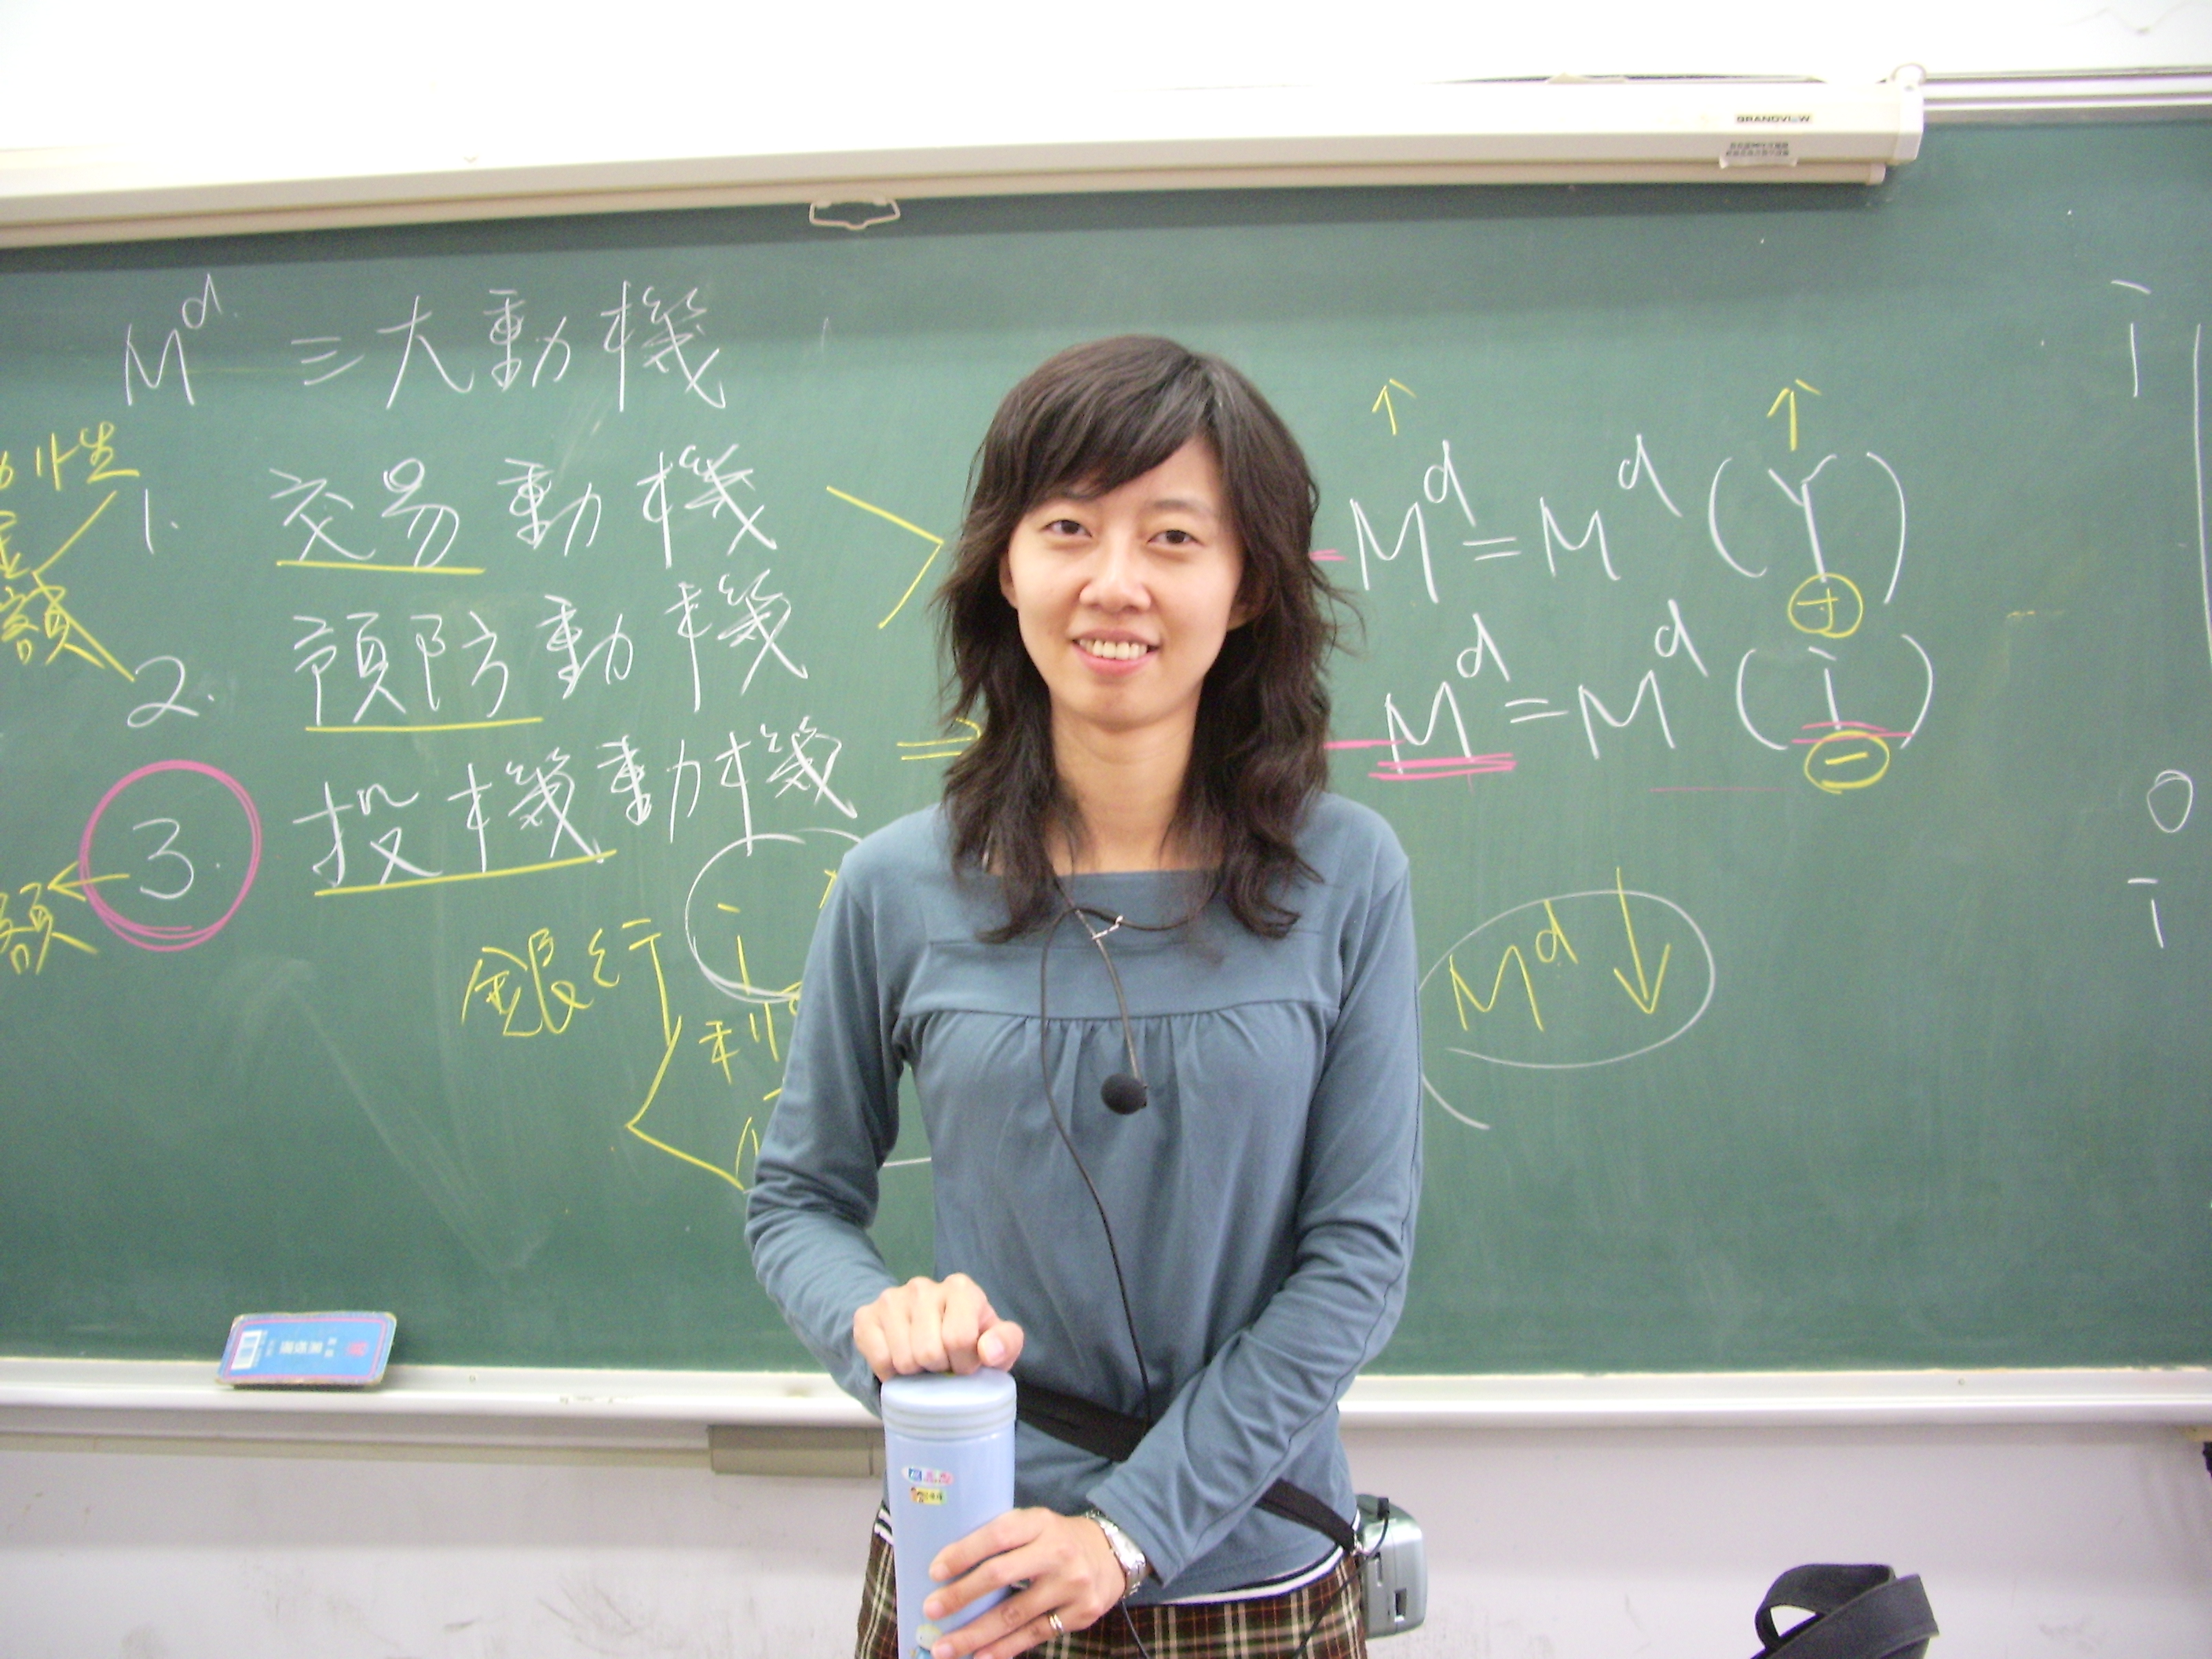 GRANDVIEW
M^d 三大動機
1. 交易動機
2. 預防動機
3. 投機動機
額
額
銀行
i
利
↑ ↑
M^d = M^d (Y)
+
M^d = M^d (i)
−
M^d ↓
i
0
i